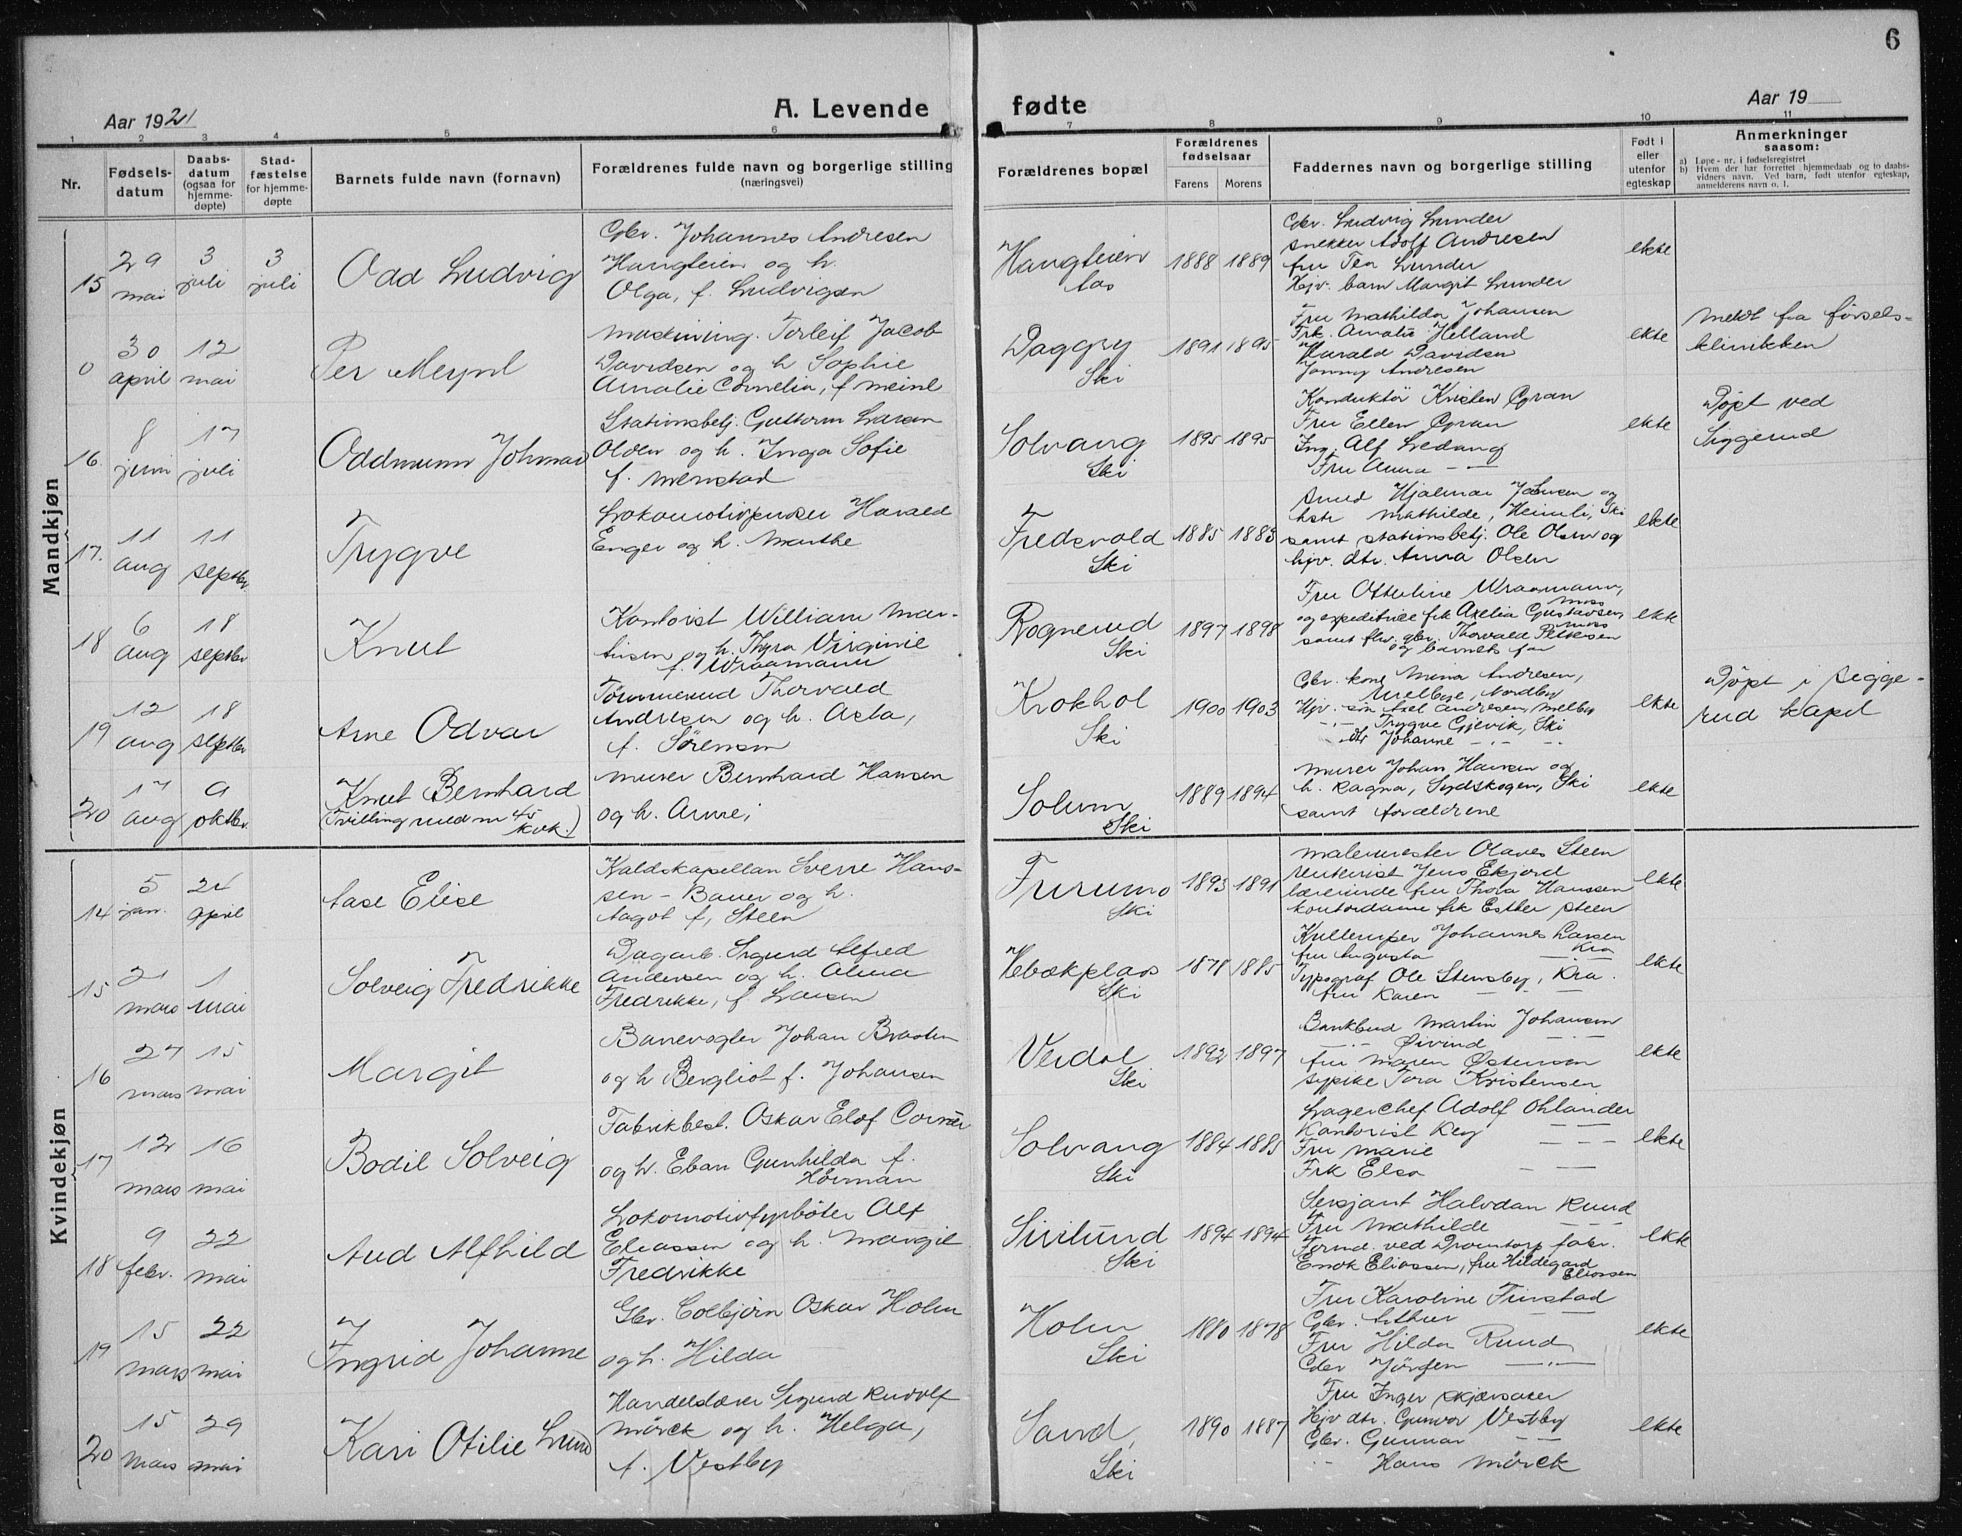 6
Aar 1921
A. Levende
fødte
Aar 19
1 2 3 4 5 6 7 8 9 10 11
Nr.
Fødsels-
datum
Daabs-
datum
(ogsaa for
hjemme-
døpte)
Stad-
fæstelse
for hjemme-
døpte
Barnets fulde navn (fornavn)
Forældrenes fulde navn og borgerlige stilling
(næringsvei)
Forældrenes bopæl
Forældrenes
fødselsaar
Farens Morens
Faddernes navn og borgerlige stilling
Født i
eller
utenfor
egteskap
Anmerkninger
saasom:
a) Løpe-nr. i fødselsregistret
b) Hvem der har forrettet hjemmedaab og to daabs-
vidners navn. Ved barn, født utenfor egteskap,
anmelderens navn o. l.
Mandkjøn
15
29 mai
3 juli
3 juli
Odd Ludvig
Gbr. Johannes Andresen
Haugteien og h.
Olga, f. Ludvigsen
Haugteien
Aas
1888 1889
Gbr. Ludvig Lunder
snekker Adolf Andresen
fru Tea Lunder
Hjv. barn Margit Lunder
ekte
0
30 april
12 mai
Per Meynl
Maskining. Torleif Jacob
Davidsen og h Sophie
Amalie Cornelia, f. Meinl
Daggry
Ski
1891 1895
Fru Mathilda Johansen
Frk. Amalie Helland
Harald Davidsen
Jonny Andresen
ekte
Meldt fra førsels-
klinikken
16
8 juni
17 juli
Oddmunn Johnar
Stationsbetj. Guttorm Larsen
Olden og h. Inga Sofie
f. Menstad
Solvang
Ski
1895 1895
Konduktør Kristen Gran
Fru Ellen Gran
Ing. Alf Ledang
Fru Anna — —
ekte
Døpt ved
Siggerud
17.
11 aug
11 septbr
Trygve
Lokomotivpudser Harald
Enger og h. Marthe
Fredsvold
Ski
1885 1883
Smed Hjalmar Jensen og
hstr Mathilde, Heimli, Ski
samt stationsbetj. Ole Olsen og
hjv. dtr. Anna Olsen
ekte
18
6 aug
18 septbr
Knut
Kontorist William Mar-
tinsen og h. Thyra Virginie
f. Wraamann
Rognerud
Ski
1897 1898
Fru Otteline Wraamann,
Moss
og expeditrice frk Axelia Gustavsen,
Moss
samt fhv. gbr. Thorvald Pettersen
og barnets far
ekte
19
12 aug
18 septbr
Arne Odvar
Tømmermd Thorvald
Andresen og h. Asta,
f. Sørensen
Krokhol
Ski
1900 1903
Gbr. kone Mina Andresen,
Melbye, Nordby
Hjv. søn Axel Andresen, Melby
—"— Trygve Gjevik, Ski
dtr Johanne —"—
ekte
Døpt i Sigge-
rud kapel
20
17 aug
9 oktbr.
Knut Bernhard
(Tvilling med nr 45
kvk.)
Murer Bernhard Hansen
og h. Anne,
Solum
Ski
1889 1894
Murer Johan Hansen og
h. Ragna, Sydskogen, Ski
samt forældrene
ekte
Kvindekjøn
14
5 jan.
24 april
Aase Elise
Kaldskapellan Sverre Hans-
sen - Bauer og h.
Aagot f. Steen
Furumo
Ski
1893 1891
Malermester Olaves Steen
rentenist Jens Ekjord
lærerinde fru Thora Hanssen
kontordame frk Esther Steen
ekte
15
21 mars
1 mai
Solveig Fredrikke
Dagarb. Sigurd Alfred
Andersen og h. Alma
Fredrikke, f. Larsen
Hebækplas
Ski
1878 1885
Kulkjører Johannes Larsen
Kra
fru Augusta
Typograf Ole Stensby, Kra.
fru Karen — —
ekte
16
27 mars
15 mai
Margit
Banevogter Johan Braaten
og h Bergliot f. Johansen
Verdal
Ski
1892 1897
Bankbud Martin Johansen
—"— Øivind —"—
fru Maren Østensen
sypike Tora Kristensen
ekte
17
12 mars
16 mai
Bodil Solveig
Fabrikbest. Oskar Elof Cornér
og h. Eban Gunhilda f.
Hörman
Solvang
Ski
1884 1885
Lagerchef Adolf Ohlander
Kontorist Rey — — —
Fru Marie
Frk Elsa — —
ekte
18
9 febr.
22 mai
Aud Alfhild
Lokomotivfyrbøter Alf
Eliassen og h. Margit
Fredrikke
Sirilund
Ski
1894 1894
Sersjant Halvdan Ruud
Fru Mathilde — — —
Formd. ved Drømtorp fabr.
Enok Eliassen, fru Hildegard
Eliassen
ekte
19
15 mars
22 mai
Ingrid Johanne
Gbr. Colbjørn Oskar Holm
og h. Hilda
Holm
Ski
1880 1878
Fru Karoline Finstad
Gbr. Arthur — —
Fru Hilda Ruud
Gbr Jørgen —"—
ekte
20
15 mars
29 mai
Kari Otilie Lund
Handelslærer Sigurd Rudolf
Mørck og h. Helga,
f. Vestby
Sand,
Ski
1890 1887
Fru Inger Skjærsaker
Hjv dtr. Gunvor Vestby
Gbr. Gunnar — —
—"— Hans Mørck
ekte